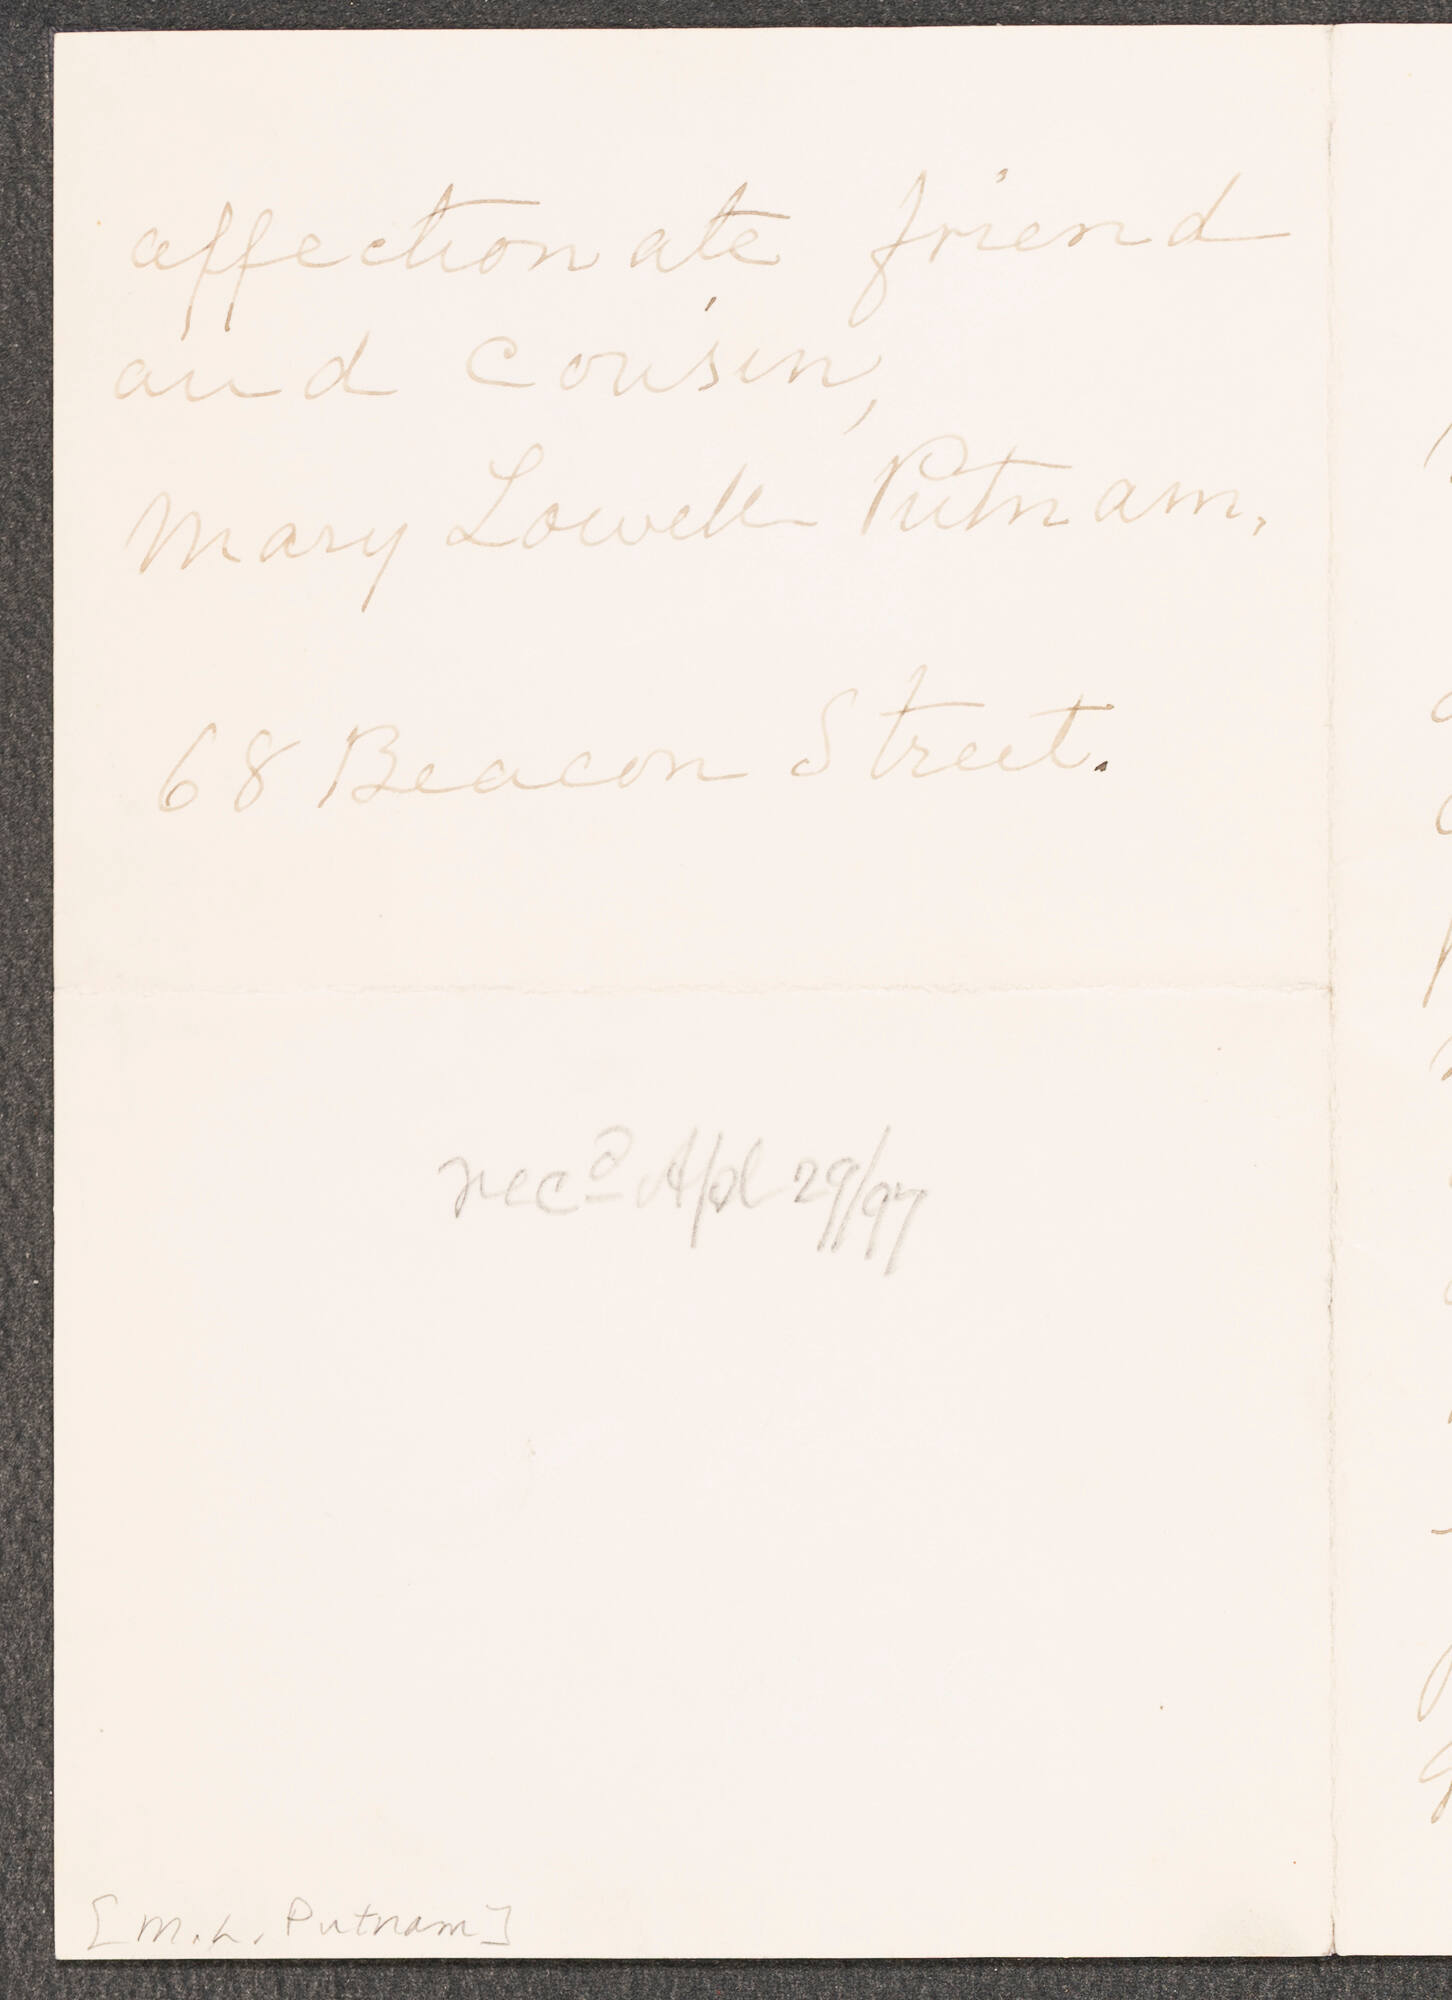 affectionate friend
and cousin,
Mary Lowell Putnam.
68 Beacon Street.
recd Apl 29/97
[M. L. Putnam]